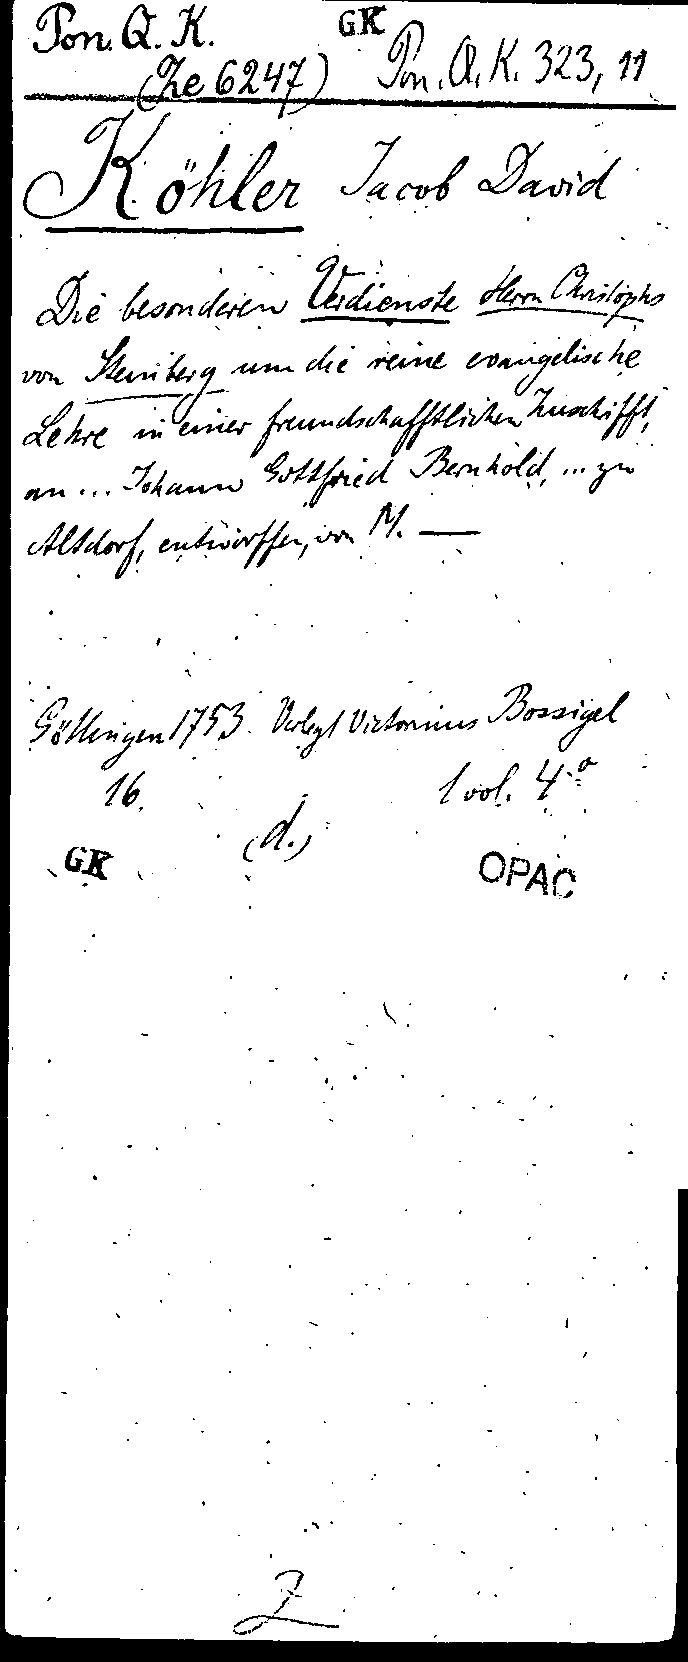 Pon. Q. K. GK
(Ze 6247) Pon. Q. K. 323, 11
Köhler Jacob David
Die besonderen Verdienste Herrn Christophs
von Steinberg um die reine evangelische
Lehre in einer freundschafftlichen Zuschifft,
an ... Johann Gottfried Bernhold, ... zu
Altdorf, entworffen, von M. —
Göttingen 1753. Verlegt Victorinus Bossigel
16. 1 vol. 4.o
(d.)
GK OPAC
Z